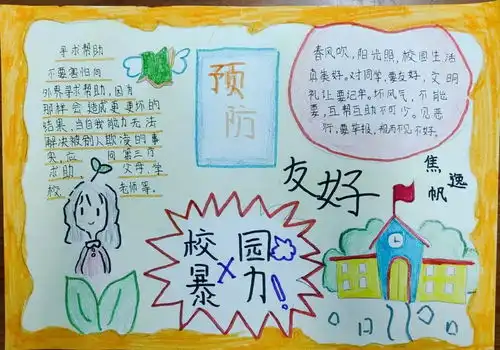 寻求帮助
不要害怕向
外界寻求帮助,因为
那样会造成更更坏的
结果,当自我能力无法
解决被别人欺凌的事
情,应 向第三方
求助、 父母,学
校、 老师等。
预
防
春风吹,阳光照,校园生活
真美好。对同学,要友好,文明
礼让要记牢。坏风气,不能
要,互帮互助不可少。见恶
行,要举报,视而不见不好。
友好
焦逸
帆
校园
暴力!